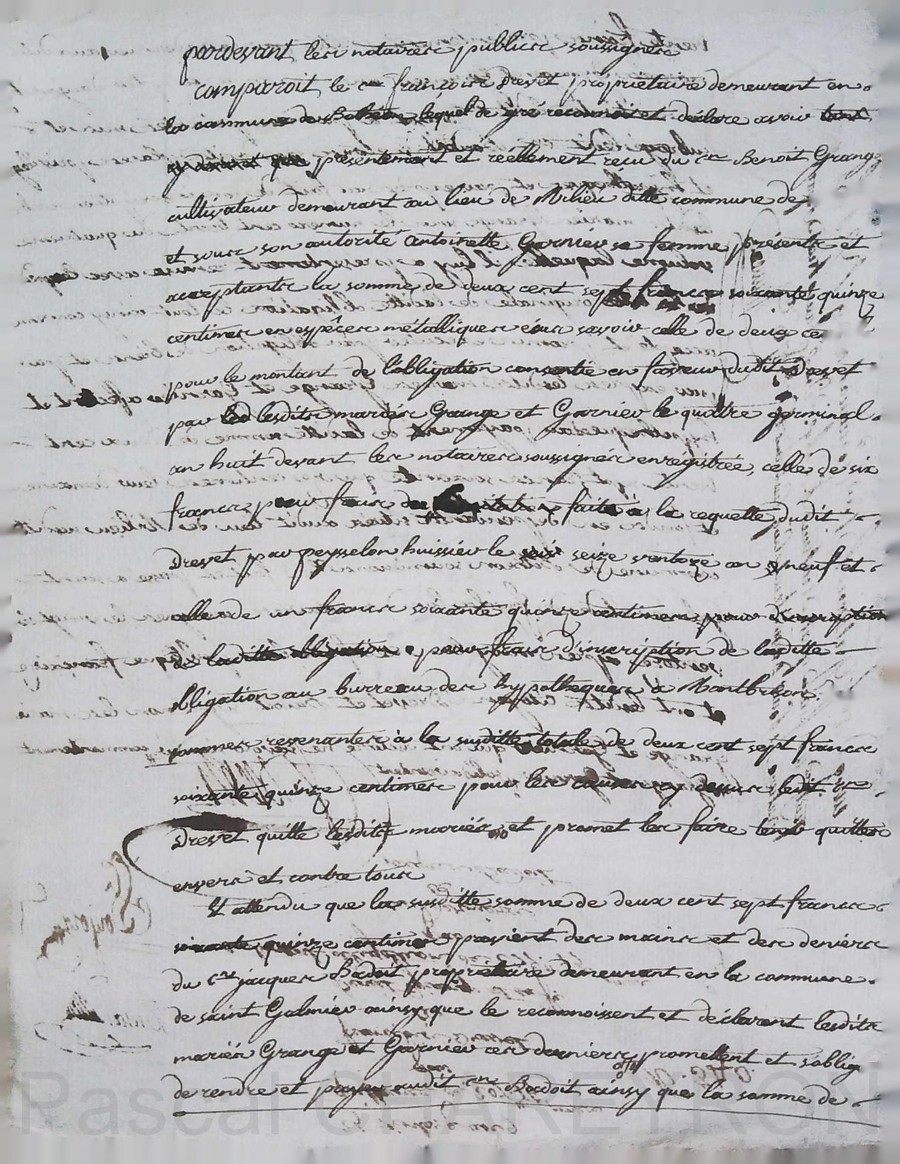 pardevant les notaires publics soussignés
comparoit le cen françois Drevet propriétaire demeurant en
la commune de lequel de gré reconnoit et déclare avoir
présentement et réellement reçu du cen Benoit Grange
cultivateur demeurant au lieu de Milieu ditte commune de
et sous son autorité Antoinette Garnier sa femme présente et
acceptante la somme de deux cent sept francs soixante quinze
centimes en espèces métalliques savoir celle de deux ce
pour le montant de l'obligation consentie en faveur dudit Drevet
par lesdits mariés Grange et Garnier le quattre germinal
an huit devant les notaires soussignés enregistrée, celle de six
francs pour frais de faite à la requette dudit
Drevet par peysselon huissier le seize ventoze an neuf et
celle de un francs soixante quinze centimes pour d'inscription
de laditte obligation pour frais d'inscription de laditte
obligation au burreau des hypothèques de Montbrison
sommes revenantes à la susditte totale de deux cent sept francs
soixante quinze centimes pour les causes cy dessus ledit cen
Drevet quitte lesdits mariés et promet les faire tenir quittes
envers et contre tous
Et attendu que la susditte somme de deux cent sept francs
soixante quinze centimes provient des mains et des deniers
du cen jacques Badoit propriétaire demeurant en la commune
de saint Galmier ainsy que le reconnoissent et déclarent lesdits
mariés Grange et Garnier ces derniers promettent et s'oblig
de rendre et payer audit cen Badoit ainsy que la somme de
Pascal CHARETRON